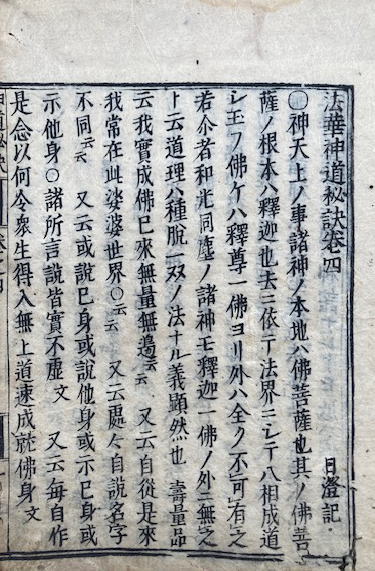 法華神道秘訣卷四
日澄記
〇神天上ノ事諸神ノ本地ハ佛菩薩也其ノ佛菩
薩ノ根本ハ釋迦也去ニ依テ法界ニシテ八相成道
シ玉フ佛ケハ釋尊一佛ヨリ外ハ全ク不可有之
若尒者和光同塵ノ諸神モ釋迦一佛ノ外ニ無之
ト云道理ハ種脫一双ノ法ナル義顯然也 壽量品
云我實成佛已來無量無邊云云 又云自從是來
我常在此娑婆世界〇云云 又云處々自說名字
不同云云 又云或說已身或說他身或示已身或
示他身〇諸所言說皆實不虛文 又云每自作
是念以何令衆生得入無上道速成就佛身文